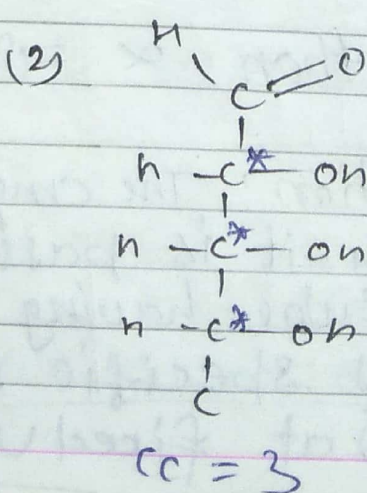 (2) H
C = O
|
H - C* - OH
|
H - C* - OH
|
H - C* - OH
|
C
CC = 3